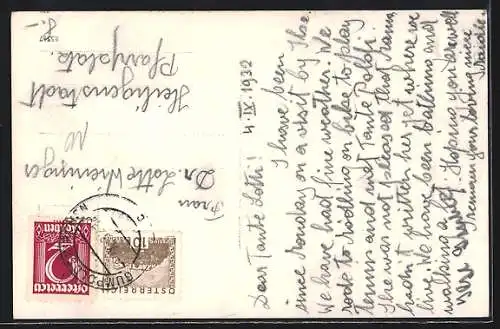 4.IX.1932
Dear Tante Lotti!
I have been
since Monday on a visit by Ilse.
We have had fine weather. We
rode to Rodling on bike to play
Tennis and met Tante Poldi.
She was not pleased that Mama
hadn't written her yet where we
live. We have been bathing and
walking a
Hoping you are well
I remain your loving niece
Frau
Dr. Lotte
Heiligenstadt
Pfarrplatz
8.-
ÖSTERREICH
2
Groschen
ÖSTERREICH
10
GUMP